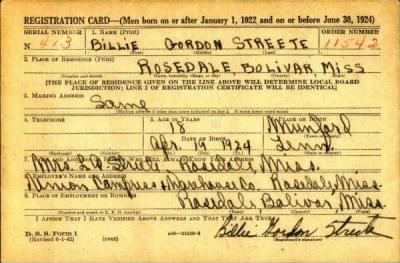 REGISTRATION CARD—(Men born on or after January 1, 1922 and on or before June 30, 1924)
SERIAL NUMBER 1. NAME (Print) ORDER NUMBER
N 413 BILLIE GORDON STREETE 11542
(First) (Middle) (Last)
2. PLACE OF RESIDENCE (Print)
ROSEDALE, BOLIVAR MISS
(Number and street) (Town, township, village, or city) (County) (State)
[THE PLACE OF RESIDENCE GIVEN ON THE LINE ABOVE WILL DETERMINE LOCAL BOARD
JURISDICTION; LINE 2 OF REGISTRATION CERTIFICATE WILL BE IDENTICAL]
3. MAILING ADDRESS
Same
4. TELEPHONE 5. AGE IN YEARS
18 Munford
DATE OF BIRTH
Apr. 19 1924 Tenn
7. NAME AND ADDRESS OF PERSON WHO WILL ALWAYS KNOW YOUR ADDRESS
Mrs. Streete Rosedale, Miss.
EMPLOYER'S NAME AND ADDRESS
Compress & Warehouse Co. Rosedale, Miss.
9. PLACE OF EMPLOYMENT OR BUSINESS
Rosedale Bolivar, Miss.
(Number and street or R. F. D. number) (Town) (County) (State)
I AFFIRM THAT I HAVE VERIFIED ABOVE ANSWERS AND THAT THEY ARE TRUE.
D. S. S. Form 1
(Revised 6-1-42) (over) Billie Gordon Streete
(Registrant's signature)